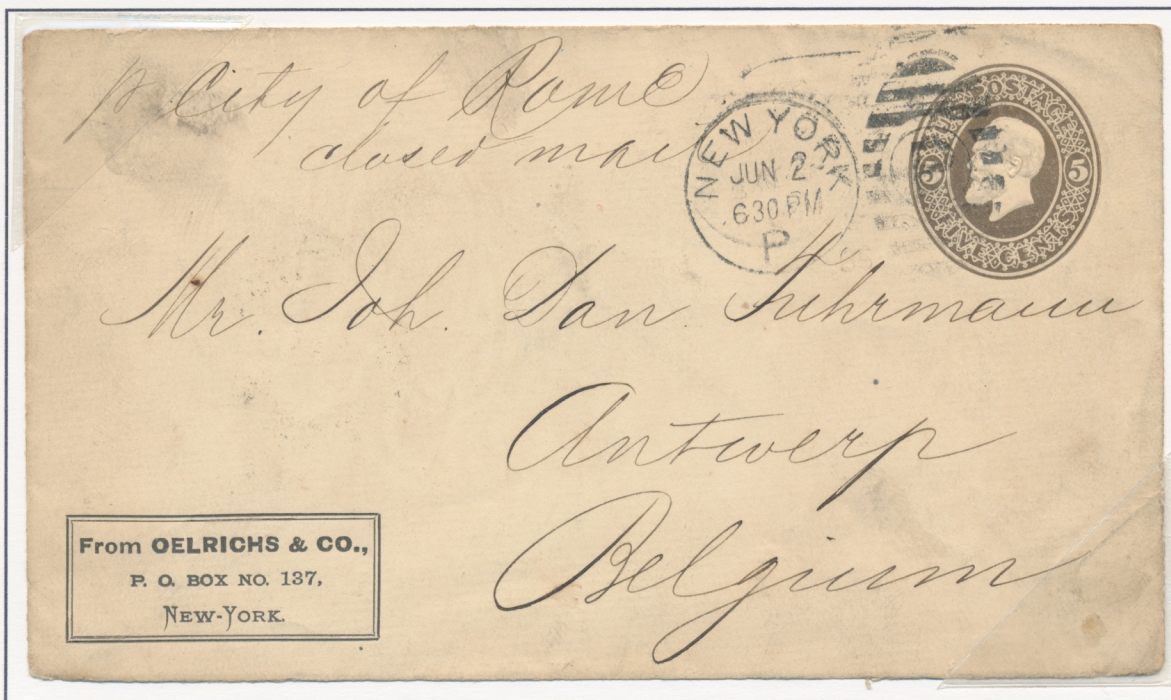 p. City of Rome
closed mail
NEW YORK
JUN 2
630 PM
P
POSTAGE
5 5
FIVE CENTS
Mr. Joh. Dan. Fuhrmann
Antwerp
Belgium
From OELRICHS & CO.,
P. O. BOX NO. 137,
NEW-YORK.